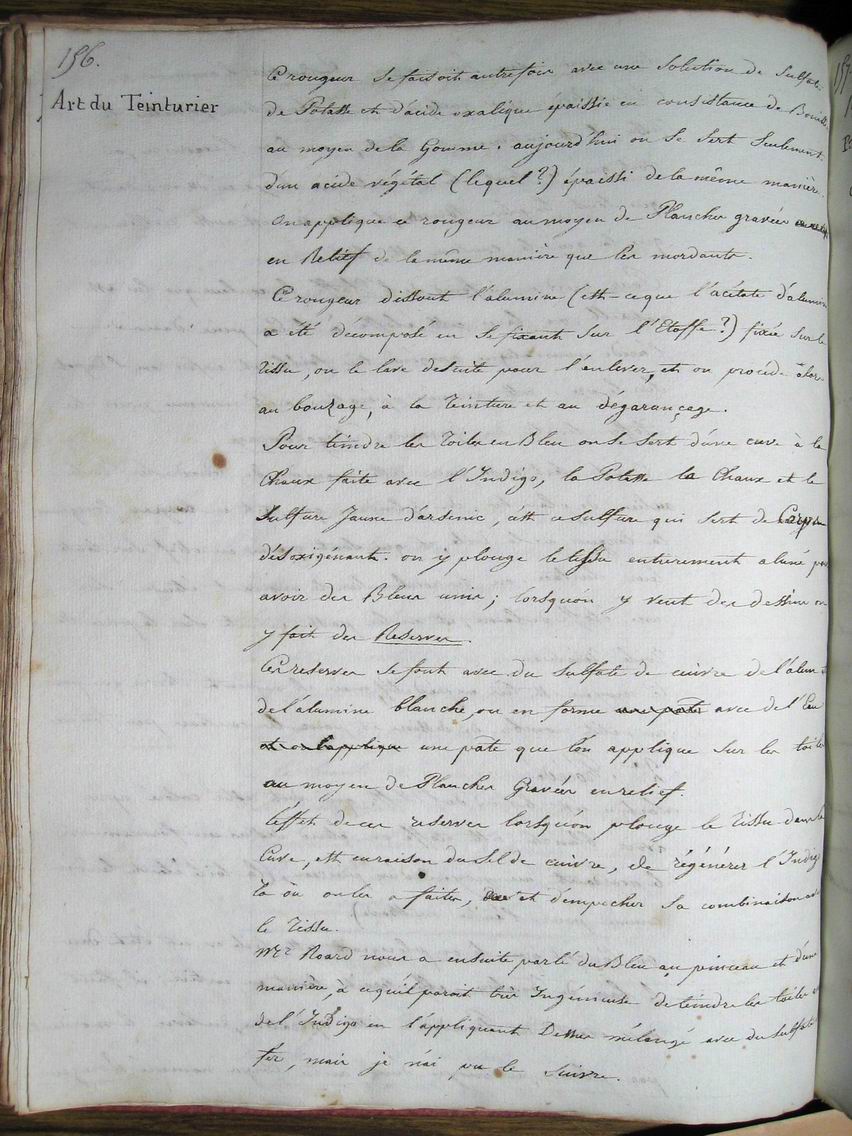 156.
Art du Teinturier
Ce rongeur se faisoit autrefois avec une solution de Sulfate
de Potasse et d'acide oxalique épaissie en consistance de Bouillie
au moyen de la Gomme. aujourd'hui on se sert seulement
d'un acide végétal (lequel ?) épaissi de la même manière.
On applique ce rongeur au moyen de Planches gravées
en Relief de la même manière que les mordants.
Ce rongeur dissout l'alumine (est-ce que l'acétate d'alumine
a été décomposé en se fixant sur l'Etoffe ?) fixée sur le
Tissu, on le lave desuite pour l'enlever, et on procède alors
au bouzage, à la Teinture et au dégarançage.
Pour teindre les Toiles en Bleu on se sert d'une cuve à la
Chaux faite avec l'Indigo, la Potasse la Chaux et le
Sulfure Jaune d'arsenic, c'est ce sulfure qui sert de Corps
désoxigénant. on y plonge le tissu entierement aluné pour
avoir des Bleus unis ; lorsqu'on y veut des dessins on
y fait des Reserves.
Ces reserves se font avec du Sulfate de cuivre de l'alun et
de l'alumine blanche, on en forme une pâte avec de l'Eau
et on l'applique une pâte que l'on applique sur les toiles
au moyen de Planches Gravées en relief.
L'effet de ces reserves lorsqu'on plonge le Tissu dans la
Cuve, est en raison du sel de cuivre, de régénérer l'Indigo
là où on les a faites, et d'empêcher sa combinaison avec
le Tissu.
Mr. Roard nous a ensuite parlé du Bleu au pinceau et d'une
manière, à ce qu'il paroit très Ingénieuse de teindre les toiles
de l'Indigo en l'appliquant Dessus mélangé avec du Sulfate
fer, mais je n'ai pu le suivre.